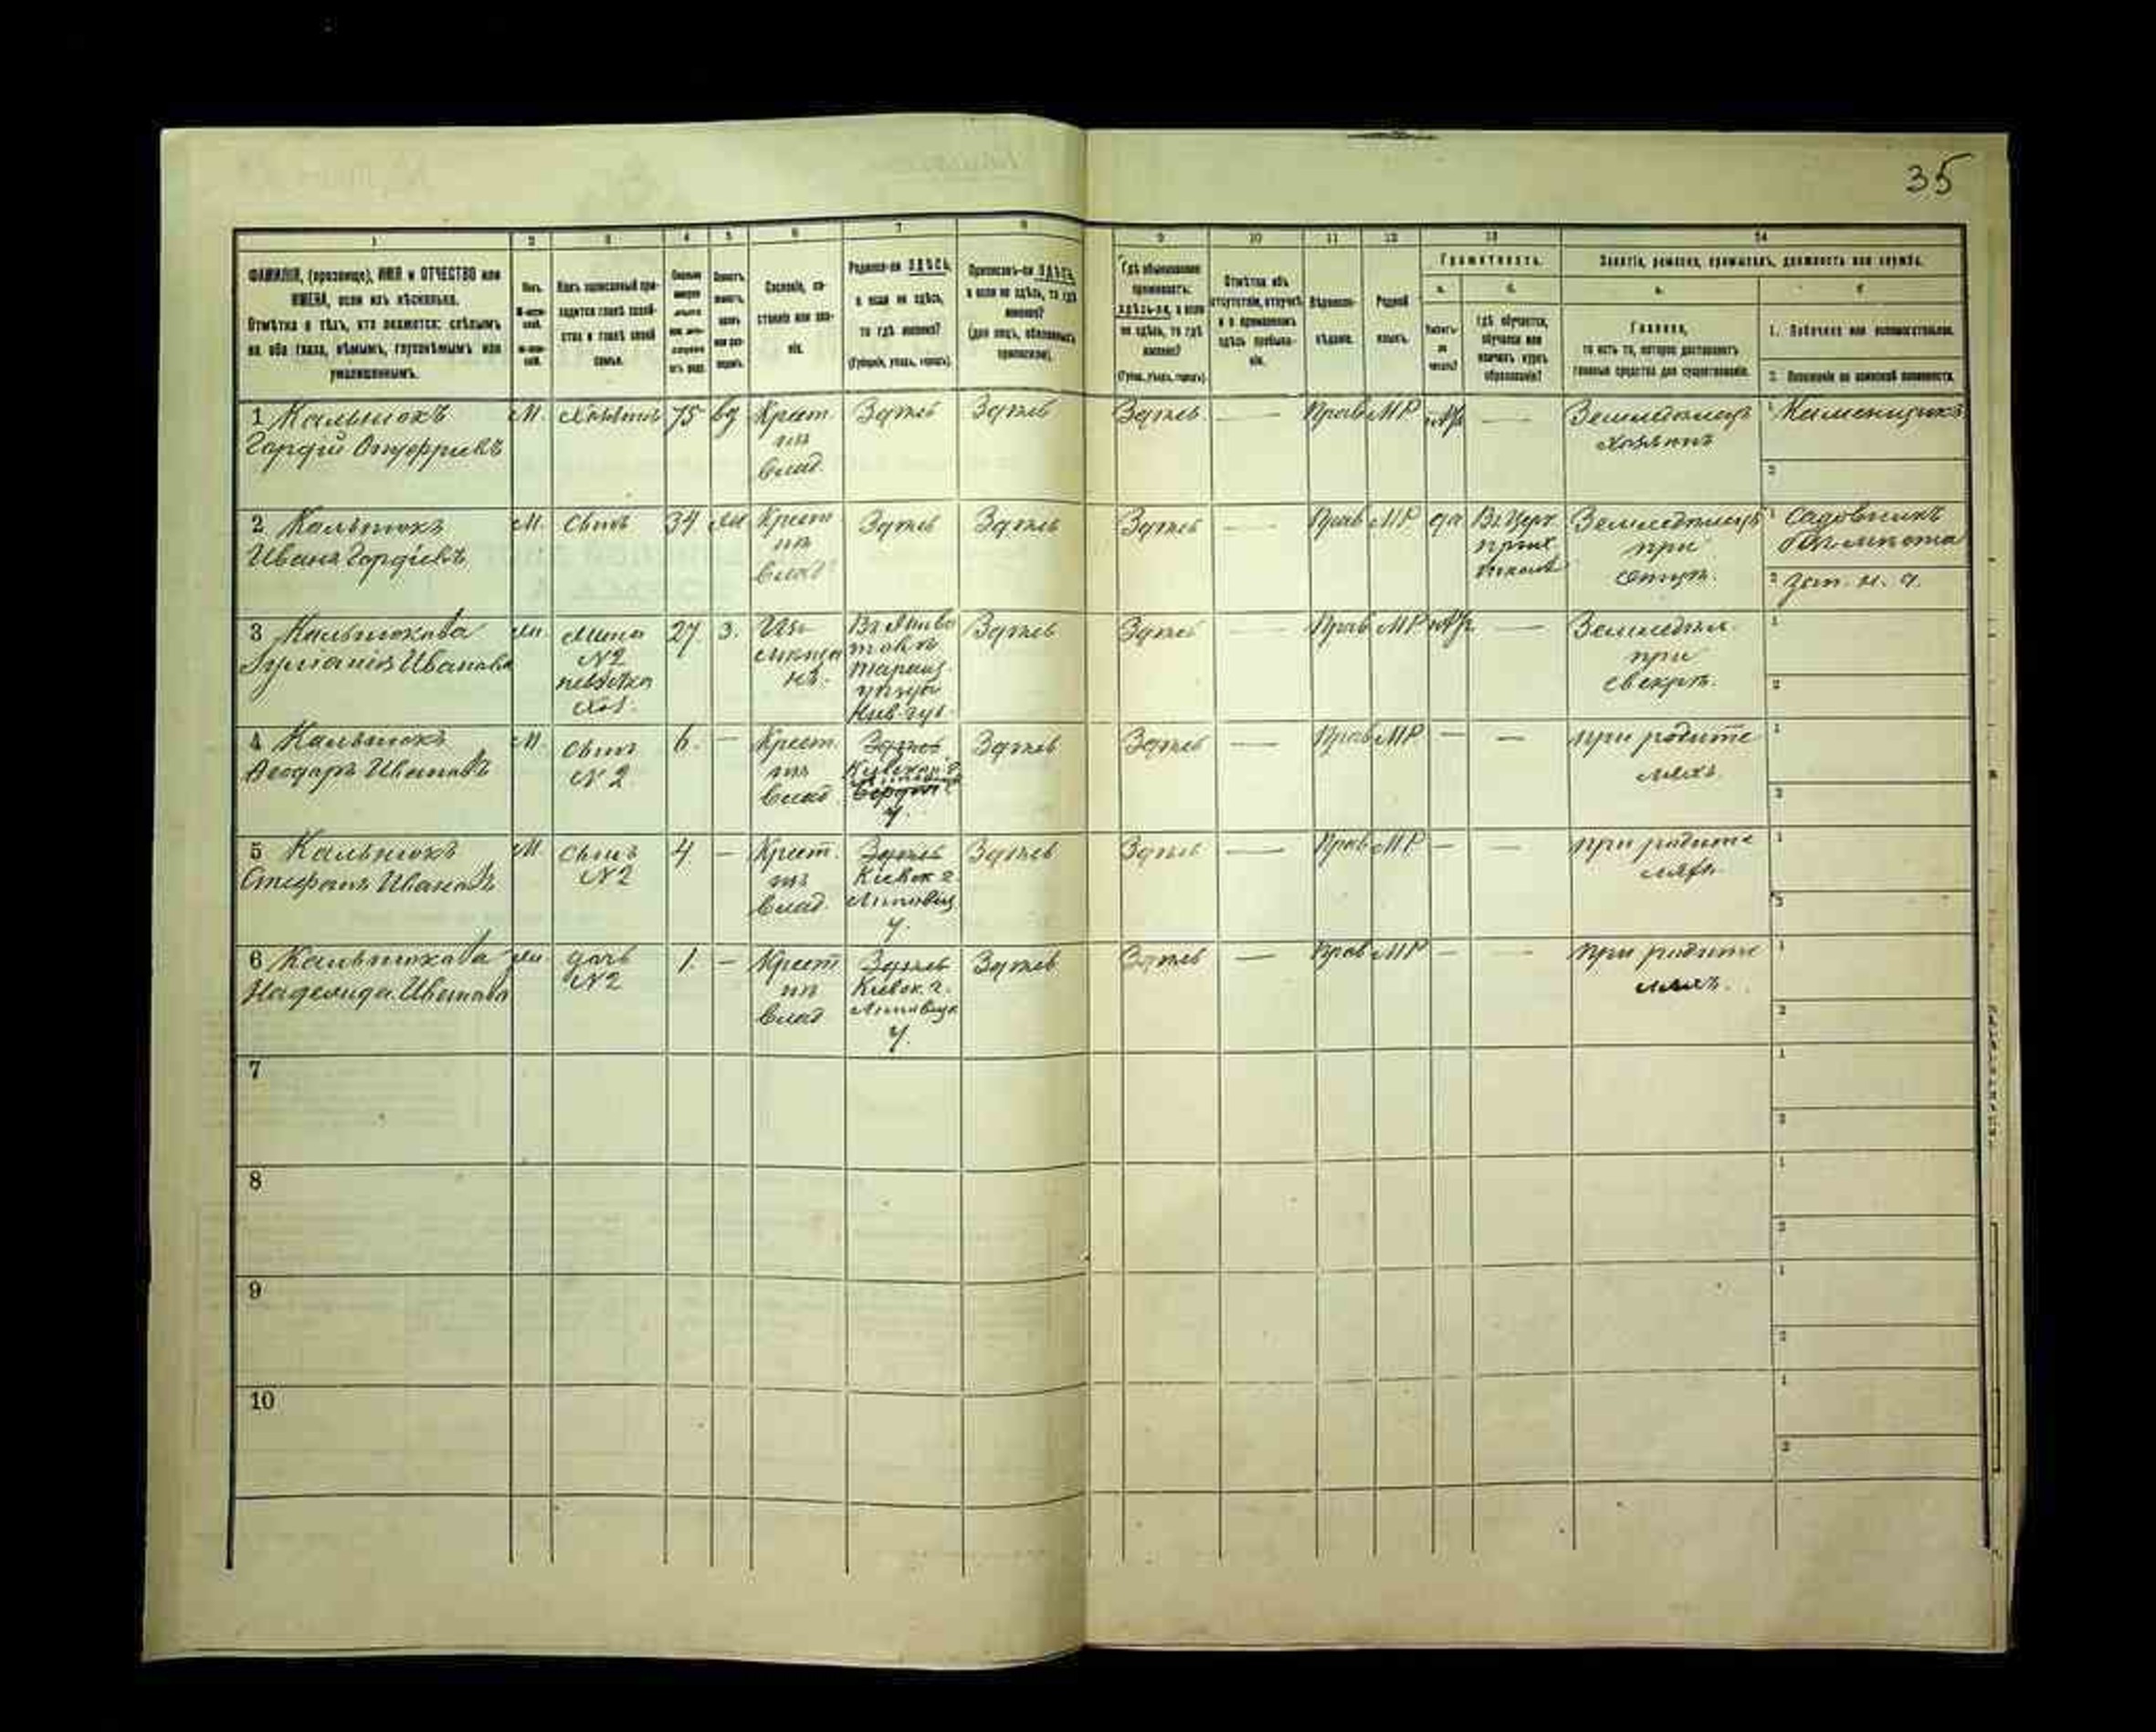 35
1 2 3 4 5 6 7 8 9 10 11 12 13 14
ФАМИЛІЯ, (прозвище), ИМЯ и ОТЧЕСТВО или
ИМЕНА, если ихъ нѣсколько.
Отмѣтка о тѣхъ, кто окажется: слѣпымъ
на оба глаза, нѣмымъ, глухонѣмымъ или
умалишеннымъ.
Полъ.
Какъ записанный при-
ходится главѣ хозяй-
ства и главѣ своей
семьи.
Сословіе, со-
стояніе или зва-
ніе.
Родился-ли ЗДѢСЬ,
а если не здѣсь,
то гдѣ именно?
(Губернія, уѣздъ, городъ).
Приписанъ-ли ЗДѢСЬ,
а если не здѣсь, то гдѣ
именно?
(для лицъ, обязанныхъ
припискою).
Гдѣ обыкновенно
проживаетъ:
здѣсь-ли, а если
не здѣсь, то гдѣ
именно?
(Губер., уѣздъ, городъ).
Отмѣтка объ
отсутствіи, отлучкѣ
и о временномъ
здѣсь пребыва-
ніи.
Вѣроиспо-
вѣданіе.
Родной
языкъ.
Грамотность.
а.
Умѣетъ-
ли
читать?
б.
Гдѣ обучается,
обучался или
кончилъ курсъ
образованія?
Занятіе, ремесло, промыселъ, должность или служба.
а.
Главное,
то есть то, которое доставляетъ
главныя средства для существованія.
б
1. Побочное или вспомогательное.
2. Положеніе по воинской повинности.
1 Кальнюкъ
Гордій Онуфріевъ
М. Хозяинъ 75 вд Крест.
изъ
влад.
Здѣсь Здѣсь Здѣсь — Прав МР нѣтъ — Земледѣлецъ
хозяинъ
1 Каменщикъ
2
2 Кальнюкъ
Иванъ Гордіевъ
М. Сынъ 34 Крест
изъ
влад.
Здѣсь Здѣсь Здѣсь — Прав МР да Въ Церк.
прих.
школѣ
Земледѣлецъ
при
отцѣ.
1 Садовникъ
безъ мѣста
2
3 Кальнюкова
Ивановна
жен. жена
№2
невѣстка
хоз.
27 3. Изъ
мѣщан
нъ.
Таращ.
уѣзда
Кіев. губ.
Здѣсь Здѣсь — Прав МР нѣтъ — Земледѣл.
при
свекрѣ.
1
2
4 Кальнюкъ
Ѳеодоръ Ивановъ
М. Сынъ
№2
6. — Крест.
изъ
влад.
Здѣсь
Кіевской г.
у.
Здѣсь Здѣсь — Прав МР — — при родите
ляхъ.
1
2
5 Кальнюкъ
Стефанъ Ивановъ
М. Сынъ
№2
4 — Крест.
изъ
влад.
Здѣсь
Кіевск. г.
Липовец.
у.
Здѣсь Здѣсь — Прав МР — — при родите
ляхъ.
1
2
6 Кальнюкова
Надежда Иванова
жен. дочь
№2
1. — Крест
изъ
влад
Здѣсь
Кіевск. г.
Липовецк
у.
Здѣсь Здѣсь — Прав МР — — при родите
ляхъ.
1
2
7
1
2
8
1
2
9
1
2
10
1
2